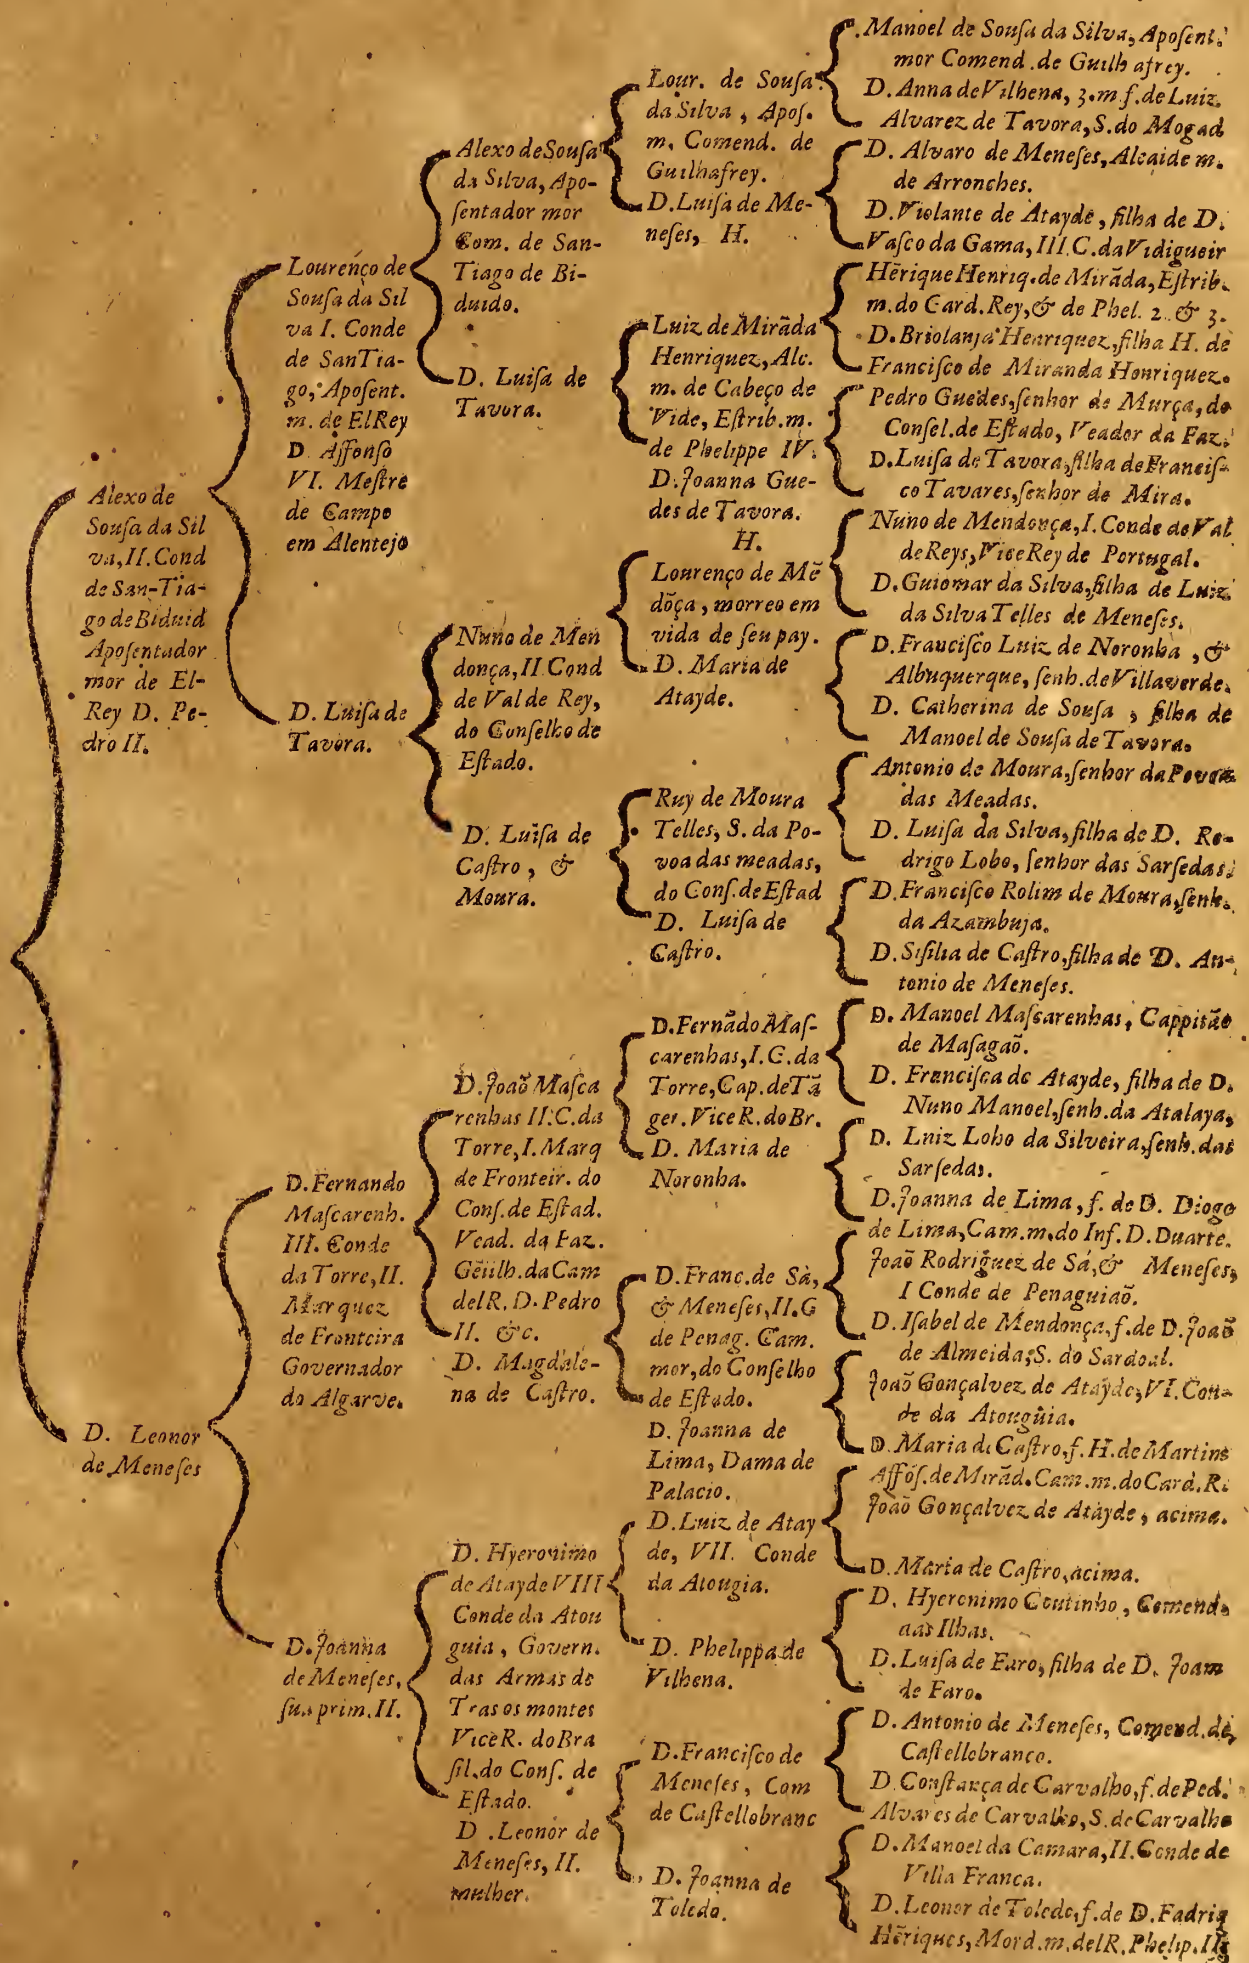 Alexo de
Sousa da Sil
va, II. Cond
de San-Tia-
go de Biduid
Aposentador
mor de El-
Rey D. Pe-
dro II.
D. Leonor
de Meneses
Lourenço de
Sousa da Sil
va I. Conde
de SanTia-
go, Aposent.
m. de ElRey
D Affonso
VI. Mestre
de Campo
em Alentejo
D. Luisa de
Tavora.
D. Fernando
Mascarenh.
III. Conde
da Torre, II.
Marquez
de Fronteira
Governador
do Algarve.
D. Joanna
de Meneses,
sua prim. II.
Alexo de Sousa
da Silva, Apo-
sentador mor
Com. de San-
Tiago de Bi-
duido.
D. Luisa de
Tavora.
Nuno de Men
donça, II Cond
de Val de Rey,
do Conselho de
Estado.
D. Luisa de
Castro, &
Moura.
D. Joaõ Masca
renhas II. C. da
Torre, I. Marq
de Fronteir. do
Cons. de Estad.
Vead. da Faz.
Gẽtilh. da Cam
delR. D. Pedro
II. &c.
D. Magdale-
na de Castro.
D. Hyeronimo
de Atayde VIII
Conde da Atou
guia, Govern.
das Armas de
Tras os montes
Vice R. do Bra
sil. do Cons. de
Estado.
D. Leonor de
Meneses, II.
mulher.
Lour. de Sousa
da Silva, Apos.
m. Comend. de
Guilhafrey.
D. Luisa de Me-
neses, H.
Luiz de Mirãda
Henriquez, Alc.
m. de Cabeço de
Vide, Estrib. m.
de Phelippe IV.
D. Joanna Gue-
des de Tavora.
H.
Lourenço de Mẽ
dõça, morreo em
vida de seu pay.
D. Maria de
Atayde.
Ruy de Moura
Telles, S. da Po-
voa das meadas,
do Cons. de Estad
D. Luisa de
Castro.
D. Fernãdo Mas-
carenhas, I. C. da
Torre, Cap. de Tã
ger. Vice R. do Br.
D. Maria de
Noronha.
D. Franc. de Sà,
& Meneses, II. C
de Penag. Cam.
mor, do Conselho
de Estado.
D. Joanna de
Lima, Dama de
Palacio.
D. Luiz de Atay
de, VII. Conde
da Atougia.
D. Phelippa de
Vilhena.
D. Francisco de
Meneses, Com
de Castellobranc
D. Joanna de
Toledo.
Manoel de Sousa da Silva, Aposent.
mor Comend. de Guilhafrey.
D. Anna de Vilhena, 3. m f. de Luiz
Alvarez de Tavora, S. do Mogad
D. Alvaro de Meneses, Alcaide m.
de Arronches.
D. Violante de Atayde, filha de D.
Vasco da Gama, III. C. da Vidigueir
Hẽrique Henriq. de Mirãda, Estrib.
m. do Card. Rey, & de Phel. 2. & 3.
D. Briolanja Henriquez, filha H. de
Francisco de Miranda Henriquez.
Pedro Guedes, senhor de Murça, do
Consel. de Estado, Veador da Faz.
D. Luisa de Tavora, filha de Francis-
co Tavares, senhor de Mira.
Nuno de Mendonça, I. Conde de Val
de Reys, Vice Rey de Portugal.
D. Guiomar da Silva, filha de Luiz
da Silva Telles de Meneses.
D. Francisco Luiz de Noronha, &
Albuquerque, senh. de Villaverde.
D. Catherina de Sousa, filha de
Manoel de Sousa de Tavora.
Antonio de Moura, senhor da Povoa
das Meadas.
D. Luisa da Silva, filha de D. Ro-
drigo Lobo, senhor das Sarsedas.
D. Francisco Rolim de Moura, senh.
da Azambuja.
D. Sisilia de Castro, filha de D. An-
tonio de Meneses.
D. Manoel Mascarenhas, Cappitão
de Masagaõ.
D. Francisca de Atayde, filha de D.
Nuno Manoel, senh. da Atalaya,
D. Luiz Lobo da Silveira, senh. das
Sarsedas.
D. Joanna de Lima, f. de D. Diogo
de Lima, Cam. m. do Inf. D. Duarte.
Joaõ Rodriguez de Sá, & Meneses,
I Conde de Penaguiaõ.
D. Isabel de Mendonça, f. de D. Joaõ
de Almeida, S. do Sardoal.
Joaõ Gonçalvez de Atayde, VI. Con-
de da Atouguia.
D. Maria de Castro, f. H. de Martins
Affõs. de Mirãd. Cam. m. do Card. R.
Joaõ Gonçalvez de Atayde, acima.
D. Maria de Castro, acima.
D. Hyeronimo Coutinho, Comend.
das Ilhas.
D. Luisa de Faro, filha de D. Joam
de Faro.
D. Antonio de Meneses, Comend. de
Castellobranco.
D. Constança de Carvalho, f. de Ped.
Alvares de Carvalho, S. de Carvalho
D. Manoel da Camara, II. Conde de
Villa Franca.
D. Leonor de Toledo, f. de D. Fadriq
Hẽriques, Mord. m. delR. Phelip. II